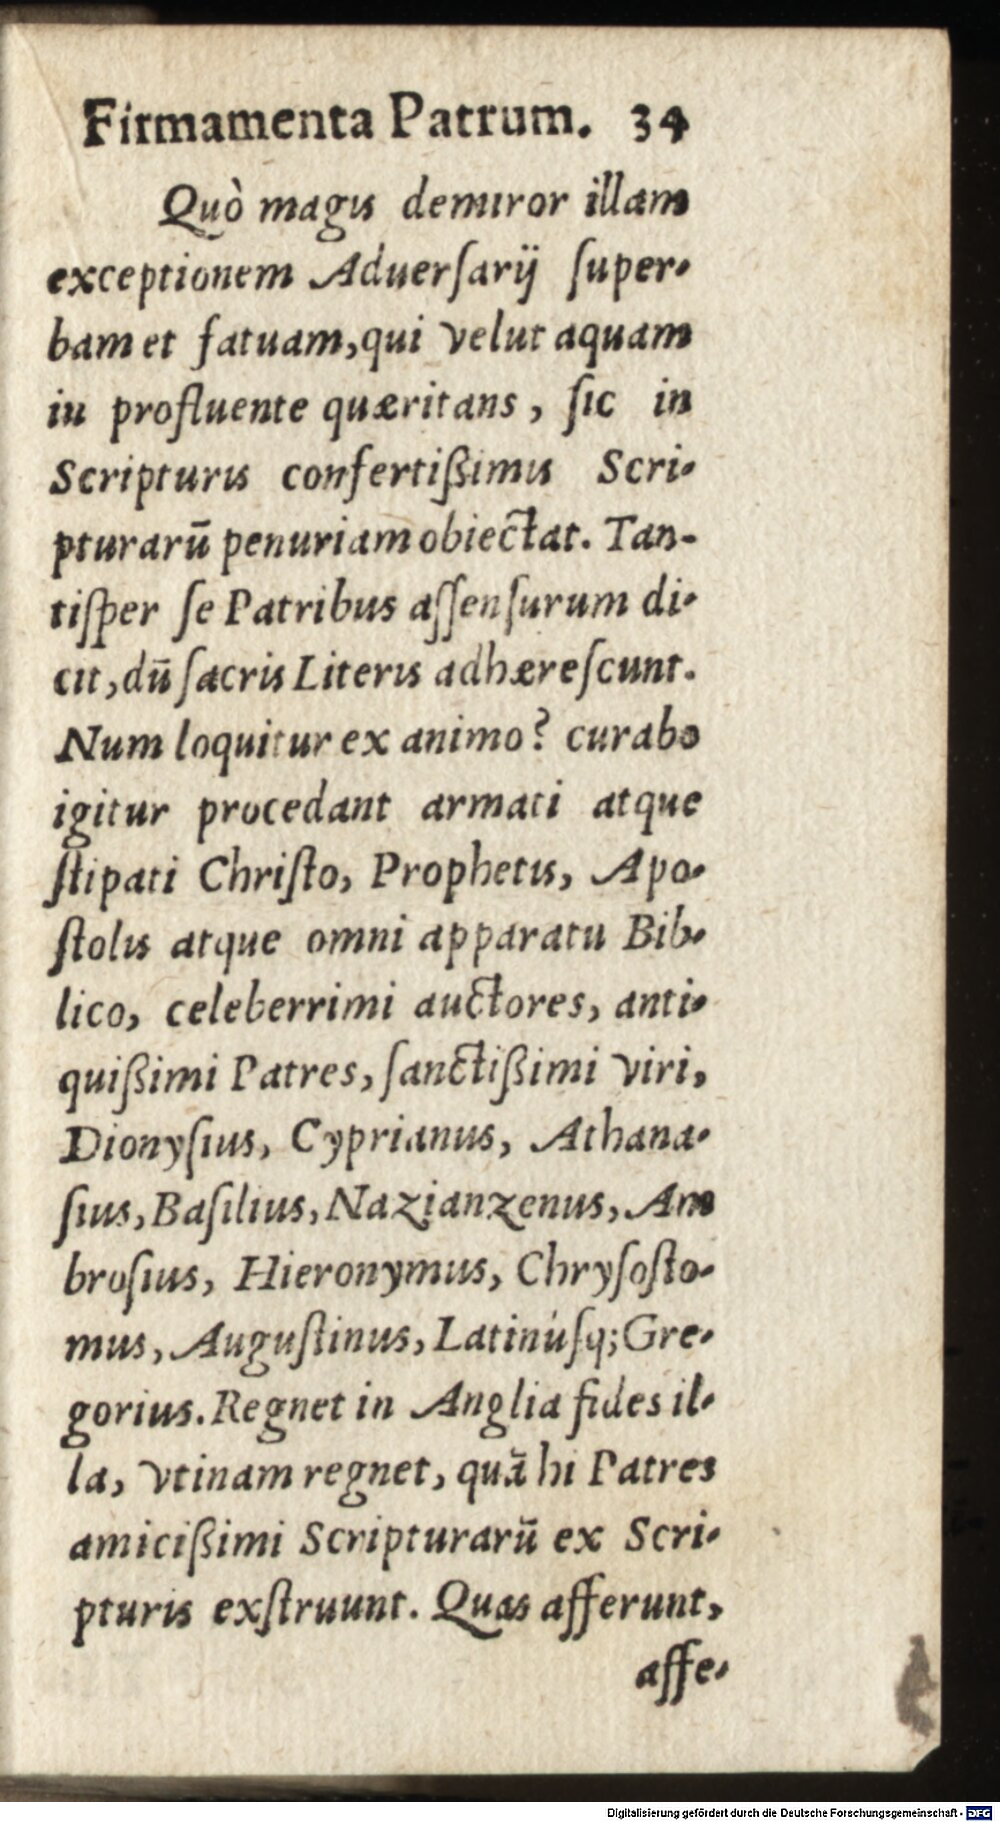 Firmamenta Patrum. 34
Quò magis demiror illam
exceptionem Aduerſarij ſuper-
bam et fatuam, qui velut aquam
in profluente quæritans, ſic in
Scripturis confertißimis Scri-
pturarū penuriam obiectat. Tan-
tiſper ſe Patribus aſſenſurum di-
cit, dū ſacris Literis adhæreſcunt.
Num loquitur ex animo? curabo
igitur procedant armati atque
ſtipati Chriſto, Prophetis, Apo-
ſtolis atque omni apparatu Bib-
lico, celeberrimi auctores, anti-
quißimi Patres, ſanctißimi viri,
Dionyſius, Cyprianus, Athana-
ſius, Baſilius, Nazianzenus, Am
broſius, Hieronymus, Chryſoſto-
mus, Auguſtinus, Latinúſq; Gre-
gorius. Regnet in Anglia fides il-
la, vtinam regnet, quā hi Patres
amicißimi Scripturarū ex Scri-
pturis exſtruunt. Quas afferunt,
affe-
Digitalisierung gefördert durch die Deutsche Forschungsgemeinschaft - DFG